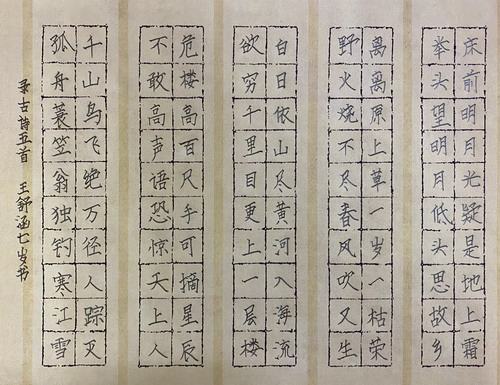 床前明月光疑是地上霜
举头望明月低头思故乡
离离原上草一岁一枯荣
野火烧不尽春风吹又生
白日依山尽黄河入海流
欲穷千里目更上一层楼
危楼高百尺手可摘星辰
不敢高声语恐惊天上人
千山鸟飞绝万径人踪灭
孤舟蓑笠翁独钓寒江雪
录古诗五首 王舒涵七岁书